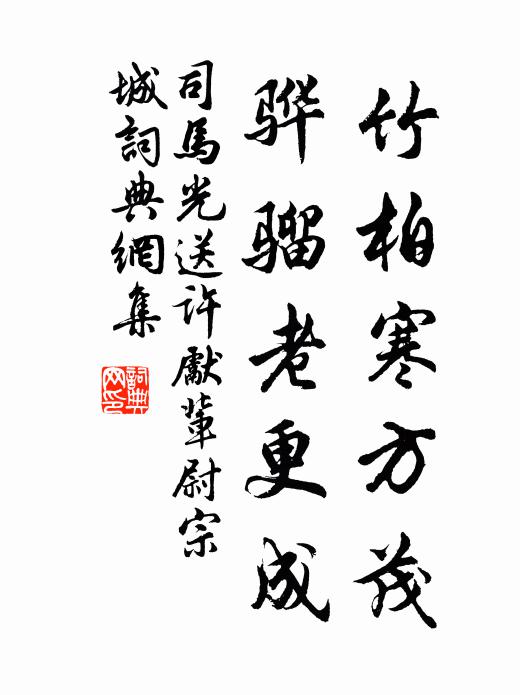 竹柏寒方茂
骅骝老更成
司馬光送許獻輩尉宗
城詞典網集
詞典网印